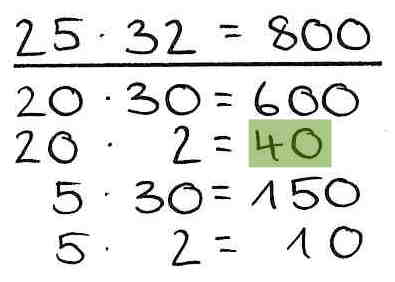 25 · 32 = 800
20 · 30 = 600
20 · 2 = 40
5 · 30 = 150
5 · 2 = 10